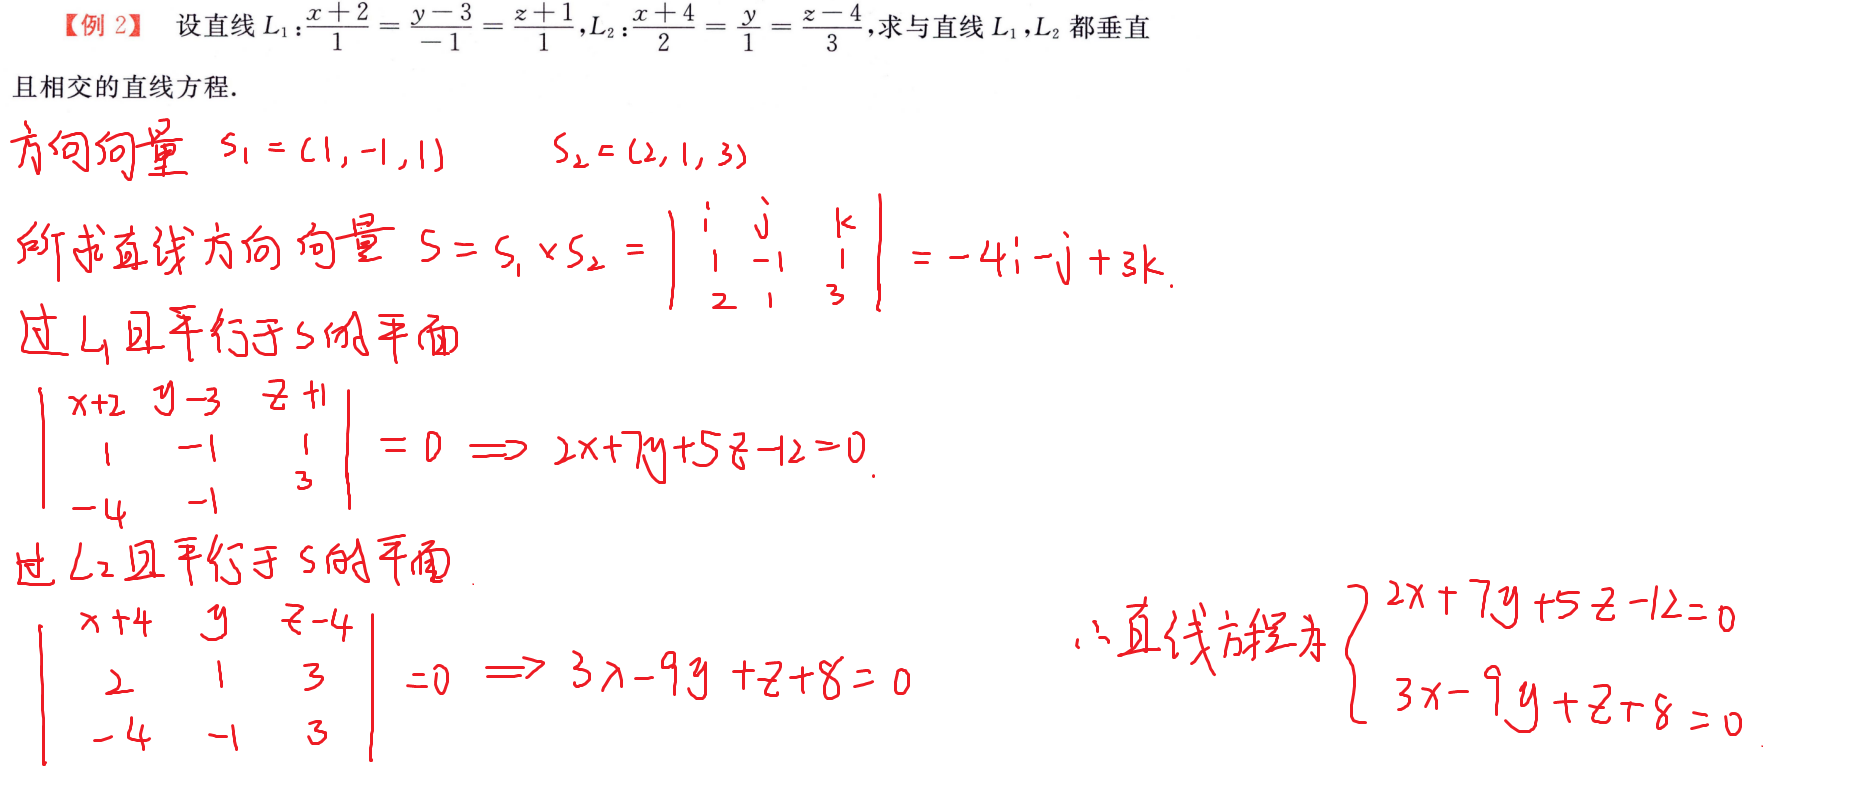 【例 2】 设直线 L₁:(x+2)/1=(y-3)/(-1)=(z+1)/1,L₂:(x+4)/2=y/1=(z-4)/3,求与直线 L₁,L₂ 都垂直
且相交的直线方程.
方向向量 S₁=(1,-1,1) S₂=(2,1,3)
所求直线方向向量 S=S₁×S₂=| i j k ; 1 -1 1 ; 2 1 3 |=-4i-j+3k.
过L₁且平行于S的平面
| x+2 y-3 z+1 ; 1 -1 1 ; -4 -1 3 |=0 ⟹ 2x+7y+5z-12=0.
过L₂且平行于S的平面.
| x+4 y z-4 ; 2 1 3 ; -4 -1 3 |=0 ⟹ 3x-9y+z+8=0
∴直线方程为 { 2x+7y+5z-12=0
3x-9y+z+8=0.